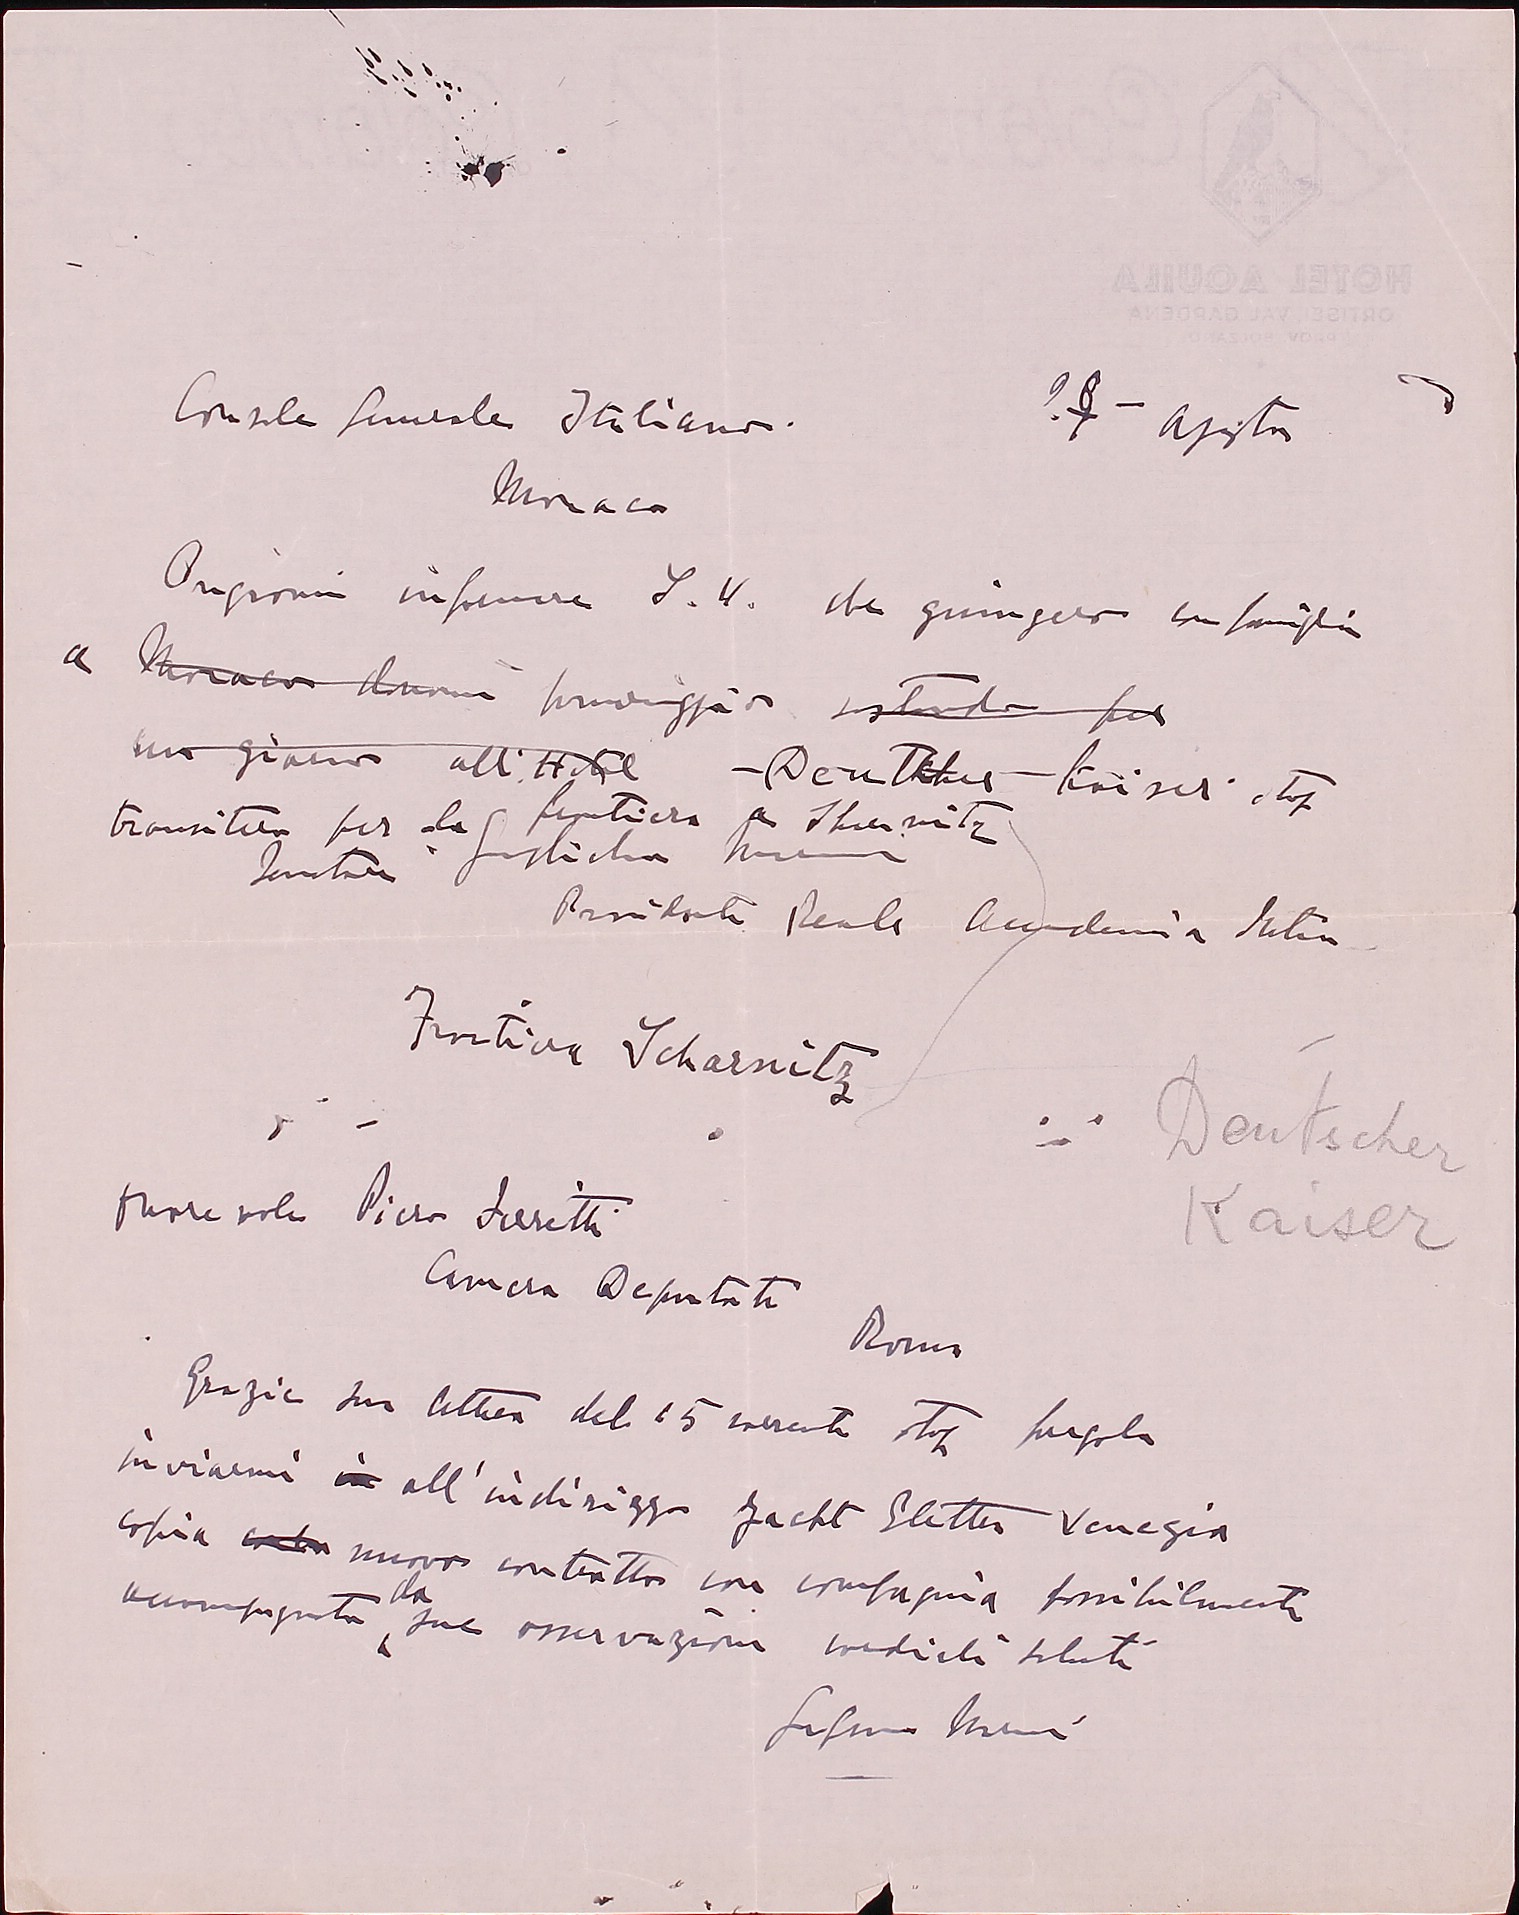 Console Generale Italiano.
Agosto
Monaco
Pregiomi informare S.V. che giungerò con famiglia
a Monaco domani pomeriggio sostando per
un giorno all'Hotel - Deutscher - Kaiser stop
transiterò per la frontiera a Sharnitz
Senatore Guglielmo Marconi
Presidente Reale Accademia Italia
Frontiera Scharnitz
Deutscher
Kaiser
Onorevole Piero
Camera Deputati
Roma
Grazie sua lettera del 15 corrente stop pregola
inviarmi in all'indirizzo Yacht Elettra Venezia
copia nuovo contratto con compagnia possibilmente
accompagnata da sue osservazioni cordiali saluti
Guglielmo Marconi
HOTEL AQUILA
ORTISEI VAL GARDENA
PROV. BOLZANO